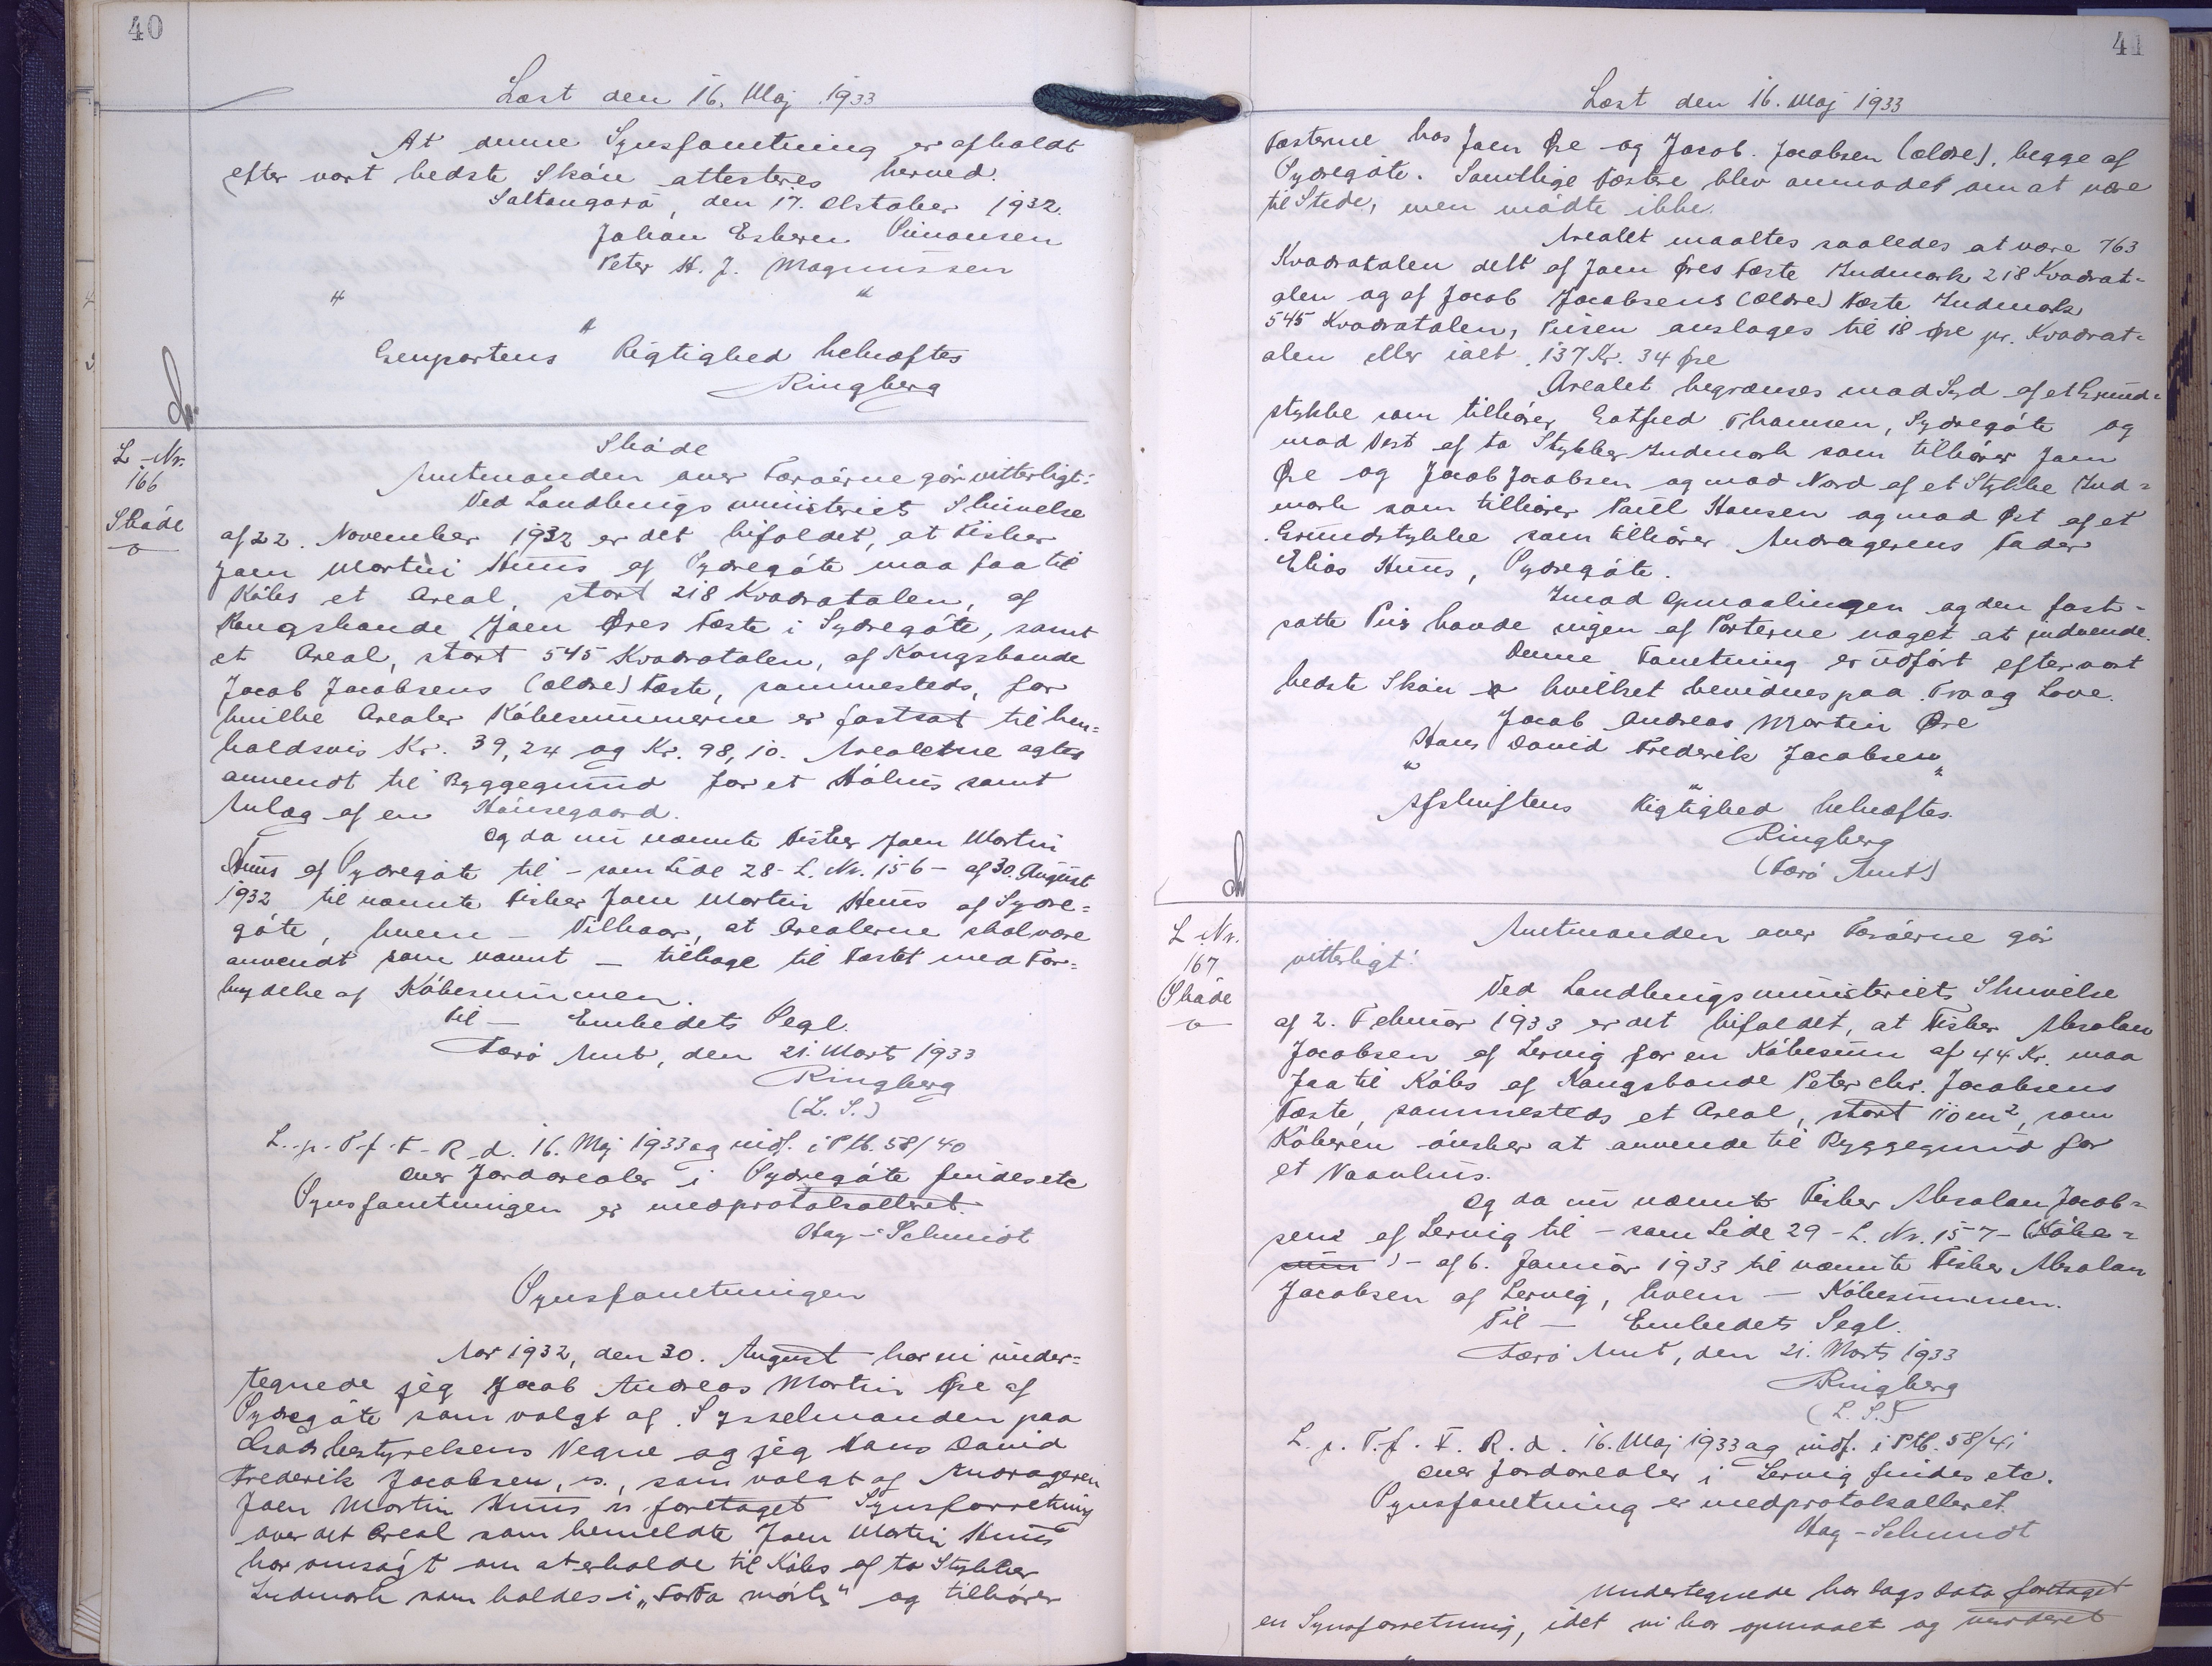 40
Læst den 16. Maj 1933
At denne Synsforretning er afholdt
efter vort bedste Skön attesteres herved.
Saltangará, den 17. Oktober 1932.
Johan Esbern Simonsen
Peter H. J. Magnussen
" "
"
Genpartens Rigtighed bekræftes
Ringberg
L-Nr.
166
Skøde
Skøde
Amtmanden over Færöerne gör vitterligt:
Ved Landbrugsministeriets Skrivelse
af 22. November 1932 er det bifaldet, at Fisker
Joen Martin Huus af Sydregöte maa faa til
Köbs et Areal, stort 218 Kvadratalen, af
Kongsbonde Joen Øres Fæste i Sydregöte, samt
et Areal, stort 545 Kvadratalen, af Kongsbonde
Jacob Jacobsens (ældre) Fæste, sammesteds, for
hvilke Arealer Köbesummerne er fastsat til hen=
holdsvis Kr. 39,24 og Kr. 98,10. Arealerne agtes
anvendt til Byggegrund for et Hölus samt
Anlæg af en Hönsegaard.
Og da nu nævnte Fisker Joen Martin
Huus af Sydregöte til - som Side 28 - L. Nr. 156 - af 30. August
1932 til nævnte Fisker Joen Martin Huus af Sydre=
göte, hvem - Vilkaar, at Arealerne skal være
anvendt som nævnt - tilbage til Fæstet mod For=
brydelse af Köbesummen.
Til - Embedets Segl.
Færö Amt, den 21. Marts 1933
Ringberg
(L. S.)
L. p. T. f. F. R. d. 16. Maj 1933 og indf. i Ptk. 58/40
over Jordarealer i Sydregöte findes etc
Synsforretningen er medprotokolleret.
Hag-Schmidt
Synsforretningen
Aar 1932, den 30. August har vi under=
tegnede jeg Jacob Andreas Martin Øre af
Sydregöte som valgt af Sysselmanden paa
Jordbestyrelsens Vegne og jeg Hans David
Frederik Jacobsen, s., som valgt af Andrageren
Joen Martin Huus foretaget Synsforretning
over det Areal som bemeldte Joen Martin Huus
har ansøgt om at erholde til Köbs af to Stykker
Indmark som kaldes i „ mörk" og tilhører
41
Læst den 16. Maj 1933
Fæsterne hos Joen Øre og Jacob Jacobsen (ældre), begge af
Sydregöte. Samtlige Fæstere blev anmodet om at være
til Stede, men mödte ikke.
Arealet maaltes saaledes at være 763
Kvadratalen delt af Joen Øres Fæste Indmark 218 Kvadrat=
alen og af Jacob Jacobsens (ældre) Fæste Indmark
545 Kvadratalen, Prisen ansloges til 18 Øre pr. Kvadrat=
alen eller ialt 137 Kr. 34 Øre
Arealet begrænses mod Syd af et Grund=
stykke som tilhører Gotfred Thomsen, Sydregöte og
mod Vest af to Stykker Indmark som tilhører Joen
Øre og Jacob Jacobsen og mod Nord af et Stykke Ind=
mark som tilhører Poul Hansen og mod Øst af et
Grundstykke som tilhører Andragerens Fader
Elias Huus, Sydregöte.
Imod Opmaalingen og den fast=
satte Pris havde ingen af Parterne noget at indvende.
Denne Forretning er udfört efter vort
bedste Skön hvilket bevidnes paa Tro og Love.
Jacob Andreas Martin Øre
Hans David Frederik Jacobsen
" "
"
Afskriftens Rigtighed bekræftes.
Ringberg
(Færö Amt)
L-Nr.
167
Skøde
Amtmanden over Færöerne gör
vitterligt:
Ved Landbrugsministeriets Skrivelse
af 2. Februar 1933 er det bifaldet, at Fisker Absalon
Jacobsen af Lervig for en Köbesum af 44 Kr. maa
faa til Köbs af Kongsbonde Peter Chr. Jacobsens
Fæste, sammesteds et Areal, stort 110 m², som
Köberen önsker at anvende til Byggegrund for
et Vaanhus.
Og da nu nævnte Fisker Absalon Jacob=
sens af Lervig til - som Side 29 - L. Nr. 157 - (Köbe=
sum) - af 6. Januar 1933 til nævnte Fisker Absalon
Jacobsen af Lervig, hvem - Köbesummen.
Til - Embedets Segl.
Færö Amt, den 21. Marts 1933
Ringberg
(L. S.)
L. p. T. f. F. R. d. 16. Maj 1933 og indf. i Ptk. 58/41
over Jordarealer i Lervig findes etc.
Synsforretning er medprotokolleret.
Hag-Schmidt
Undertegnede har Dags Dato foretaget
en Synsforretning, idet vi har opmaalt og vurderet